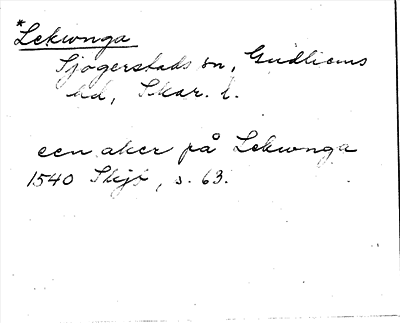 *Lekwnga
Sjogerstads sn, Gudhems
hd, Skar. l.
een aker på Lekwnga
1540 Skjö, s. 63.